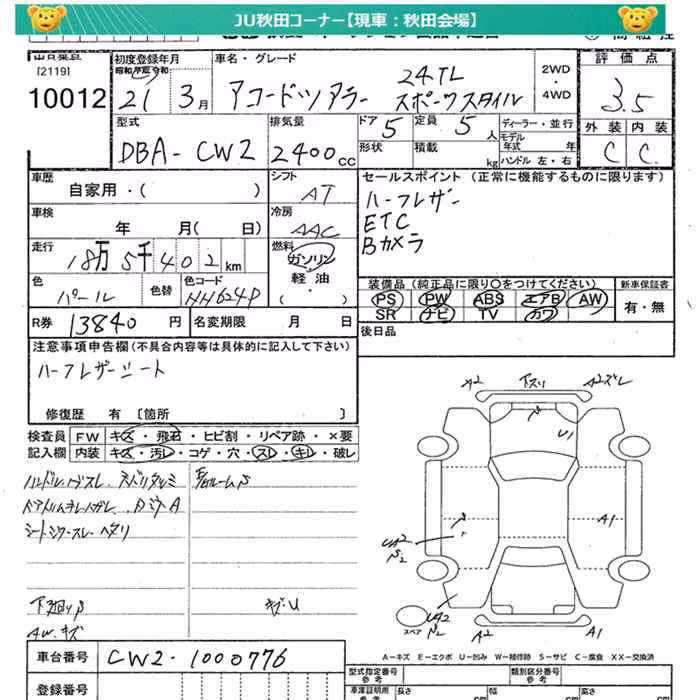 JU秋田コーナー【現車：秋田会場】
[2119]
10012
初度登録年月
昭和 平成 令和
21 3月
車名・グレード
アコードツアラー
24TL
スポーツスタイル
2WD
4WD
評価点
3.5
外装 内装
C C
型式
DBA-CW2
排気量
2400cc
ドア 5
定員 5人
形状
積載 kg
ディーラー・並行
モデル年式 年式
ハンドル 左・右
車歴
自家用・( )
シフト
AT
車検
年 月( 日)
冷房
AAC
走行
18万5千402km
燃料
ガソリン
軽油
・( )
色
パール
色替
色コード
NH624P
R券 13840円
名変期限 月 日
セールスポイント (正常に機能するものに限ります)
ハーフレザー
ETC
Bカメラ
装備品 (純正品に限り○をつけてください)
PS PW ABS エアB AW
SR ナビ TV カワ
新車保証書
有・無
後日品
注意事項申告欄 (不具合内容等は具体的に記入して下さい)
ハーフレザーシート
修復歴 有 [箇所 ]
検査員
記入欄
FW キズ・飛石・ヒビ割・リペア跡・×要
内装 キズ・汚レ・コゲ・穴・スレ・キレ・破レ
シートシワ・スレ・ヘタリ
キズ・U
AW.キズ
A2 下スリ A2ズレ
U1
A1
UA2
UA2
A2
A1
スペア
A-キズ E-エクボ U-凹ミ W-補修跡 S-サビ C-腐食 XX-交換済
車台番号 CW2-1000776
登録番号
型式指定番号
参考
類別区分番号
参考
車庫証明用
参考
長さ cm
幅 cm
高さ cm